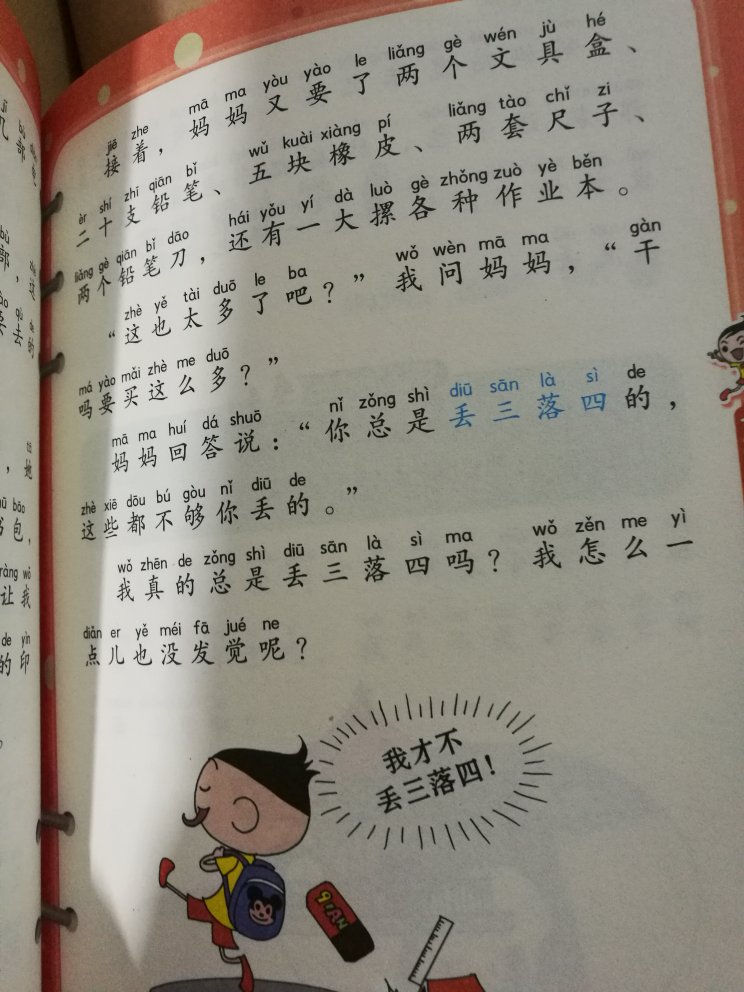 jiē zhe mā ma yòu yào le liǎng gè wén jù hé
接着，妈妈又要了两个文具盒、
èr shí zhī qiān bǐ wǔ kuài xiàng pí liǎng tào chǐ zi
二十支铅笔、五块橡皮、两套尺子、
liǎng gè qiān bǐ dāo hái yǒu yí dà luò gè zhǒng zuò yè běn
两个铅笔刀，还有一大摞各种作业本。
zhè yě tài duō le ba wǒ wèn mā ma gàn
“这也太多了吧？”我问妈妈，“干
má yào mǎi zhè me duō
吗要买这么多？”
mā ma huí dá shuō nǐ zǒng shì diū sān là sì de
妈妈回答说：“你总是丢三落四的，
zhè xiē dōu bú gòu nǐ diū de
这些都不够你丢的。”
wǒ zhēn de zǒng shì diū sān là sì ma wǒ zěn me yì
我真的总是丢三落四吗？我怎么一
diǎn er yě méi fā jué ne
点儿也没发觉呢？
我才不
丢三落四！